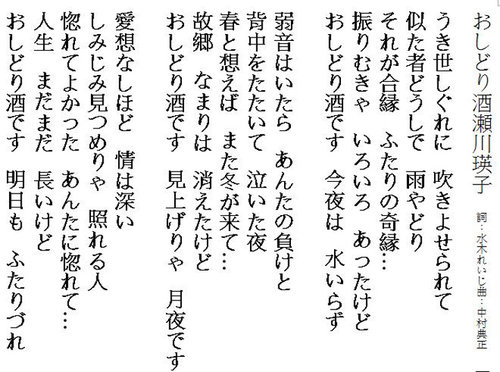 おしどり酒瀬川瑛子 詞…水木れいじ曲…中村典正
うき世しぐれに　吹きよせられて
似た者どうしで　雨やどり
それが合縁　ふたりの奇縁…
振りむきゃ　いろいろ　あったけど
おしどり酒です　今夜は　水いらず
弱音はいたら　あんたの負けと
背中をたたいて　泣いた夜
春と想えば　また冬が来て…
故郷　なまりは　消えたけど
おしどり酒です　見上げりゃ　月夜です
愛想なしほど　情は深い
しみじみ見つめりゃ　照れる人
惚れてよかった　あんたに惚れて…
人生　まだまだ　長いけど
おしどり酒です　明日も　ふたりづれ